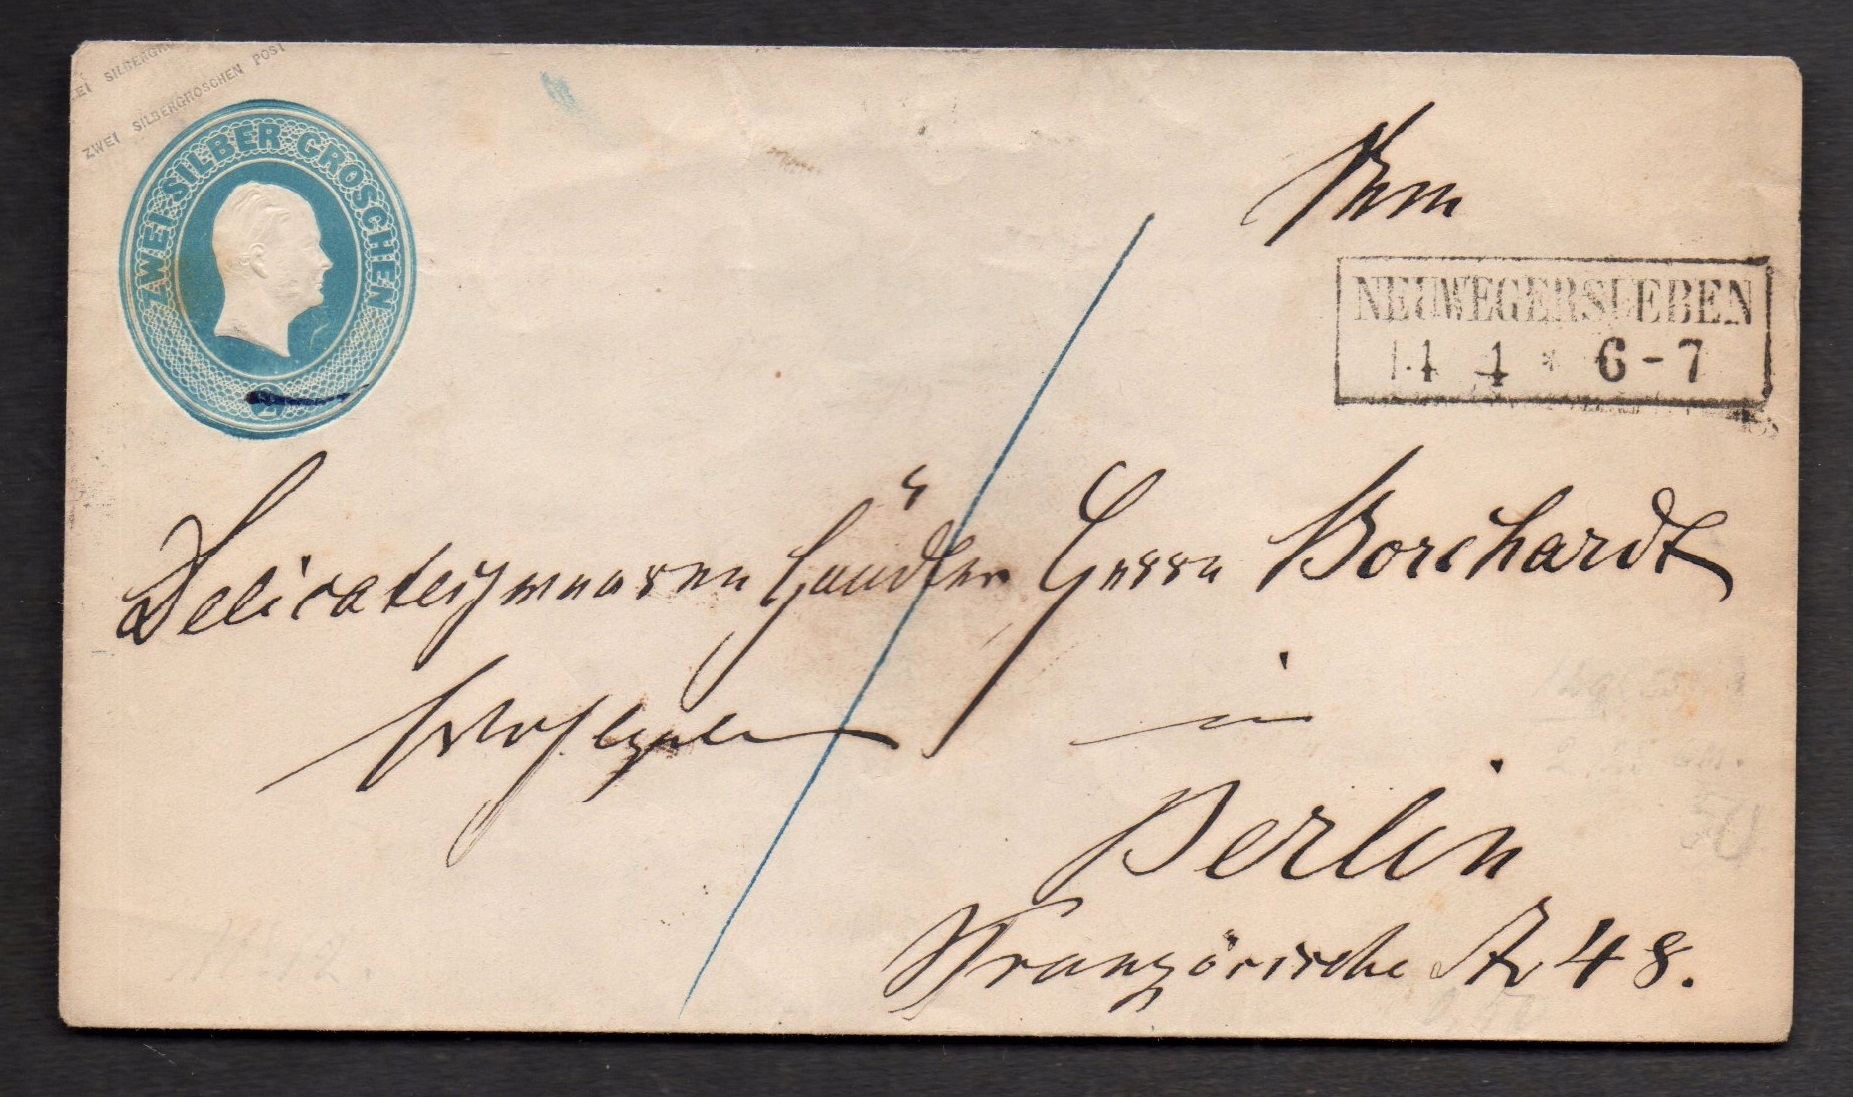 ZWEI SILBERGROSCHEN POST
ZWEI SILBER GROSCHEN
2
NEUWEGERSLEBEN
14 4 * 6-7
Delicatessenwaaren Händler Herrn Borchardt
Wohlgeb
in
Berlin
Französische Str 48.